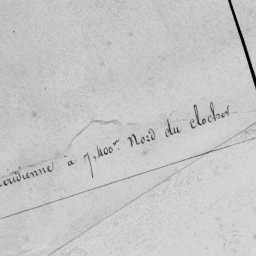 éridienne à 7,400m Nord du clocher